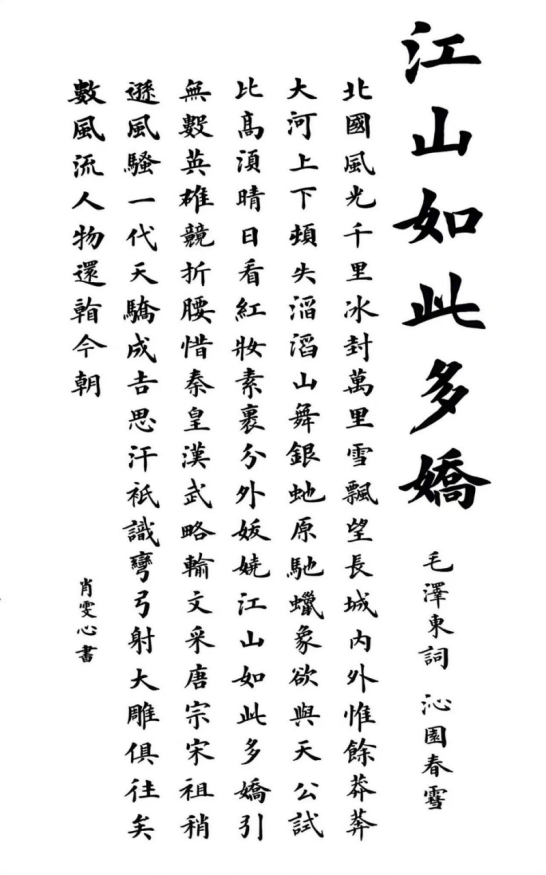 江山如此多嬌
毛澤東詞 沁園春雪
北國風光千里冰封萬里雪飄望長城内外惟餘莽莽
大河上下頓失滔滔山舞銀虵原馳蠟象欲與天公試
比高須晴日看紅妝素裹分外妖嬈江山如此多嬌引
無數英雄競折腰惜秦皇漢武略輸文采唐宗宋祖稍
遜風騷一代天驕成吉思汗衹識彎弓射大雕俱往矣
數風流人物還看今朝
肖雯心書